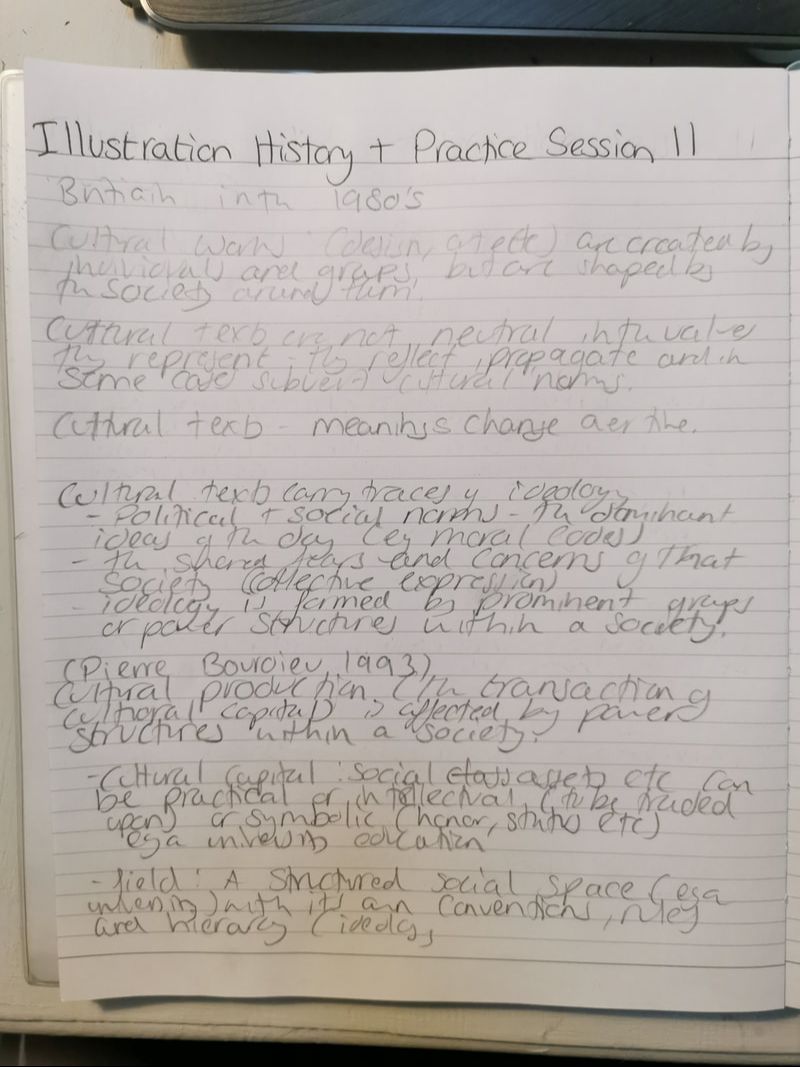 Illustration History + Practice Session 11
in th 1980's
Cultural works (design, art etc) are created by
individuals and groups, but are shaped by
th society around them.
Cultural texts are not neutral in th value
thy represent - thy reflect, propagate and in
some case subvert cultural norms.
Cultural texts - meanings change over time.
Cultural texts carry traces of ideology
- Political + social norms - th dominant
ideas of th day (eg moral codes)
- th shared fears and concerns of that
society (collective expression)
- ideology is formed by prominent groups
or power structures within a society.
(Pierre Bourdieu, 1993)
Cultural production (th transaction of
cultural capital) is affected by power
structures within a society.
- Cultural capital : social assets etc can
be practical or intellectual, (to be traded
upon) or symbolic (honor, status etc)
eg a university education
- field : A structured social space (eg a
university) with its own conventions, rules
and hierarcy (ideology